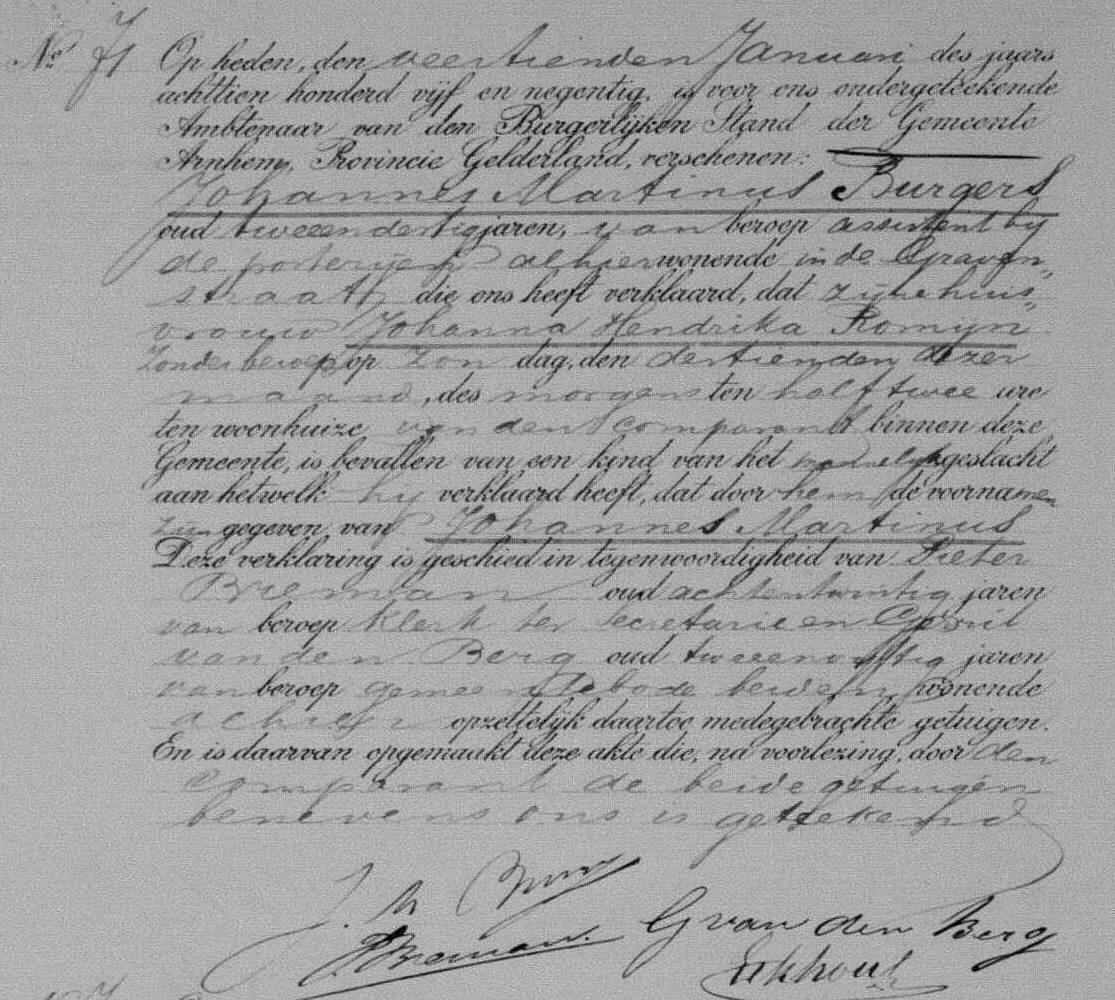 No 71
Op heden, den veertienden Januari des jaars
achttien honderd vijf en negentig, is voor ons ondergeteekende
Ambtenaar van den Burgerlijken Stand der Gemeente
Arnhem, Provincie Gelderland, verschenen:
Johannes Martinus Burgers
oud tweeendertig jaren, van beroep assistent bij
de posterijen alhier wonende in de Graven„
straat, die ons heeft verklaard, dat zijne huis„
vrouw Johanna Hendrika Romijn
zonder beroep op Zon dag, den dertienden dezer
maand, des morgens ten half twee ure
ten woonhuize van den comparant binnen deze
Gemeente, is bevallen van een kind van het mannelijk geslacht
aan hetwelk hij verklaard heeft, dat door hem de voornamen
zijn gegeven van Johannes Martinus
Deze verklaring is geschied in tegenwoordigheid van Pieter
Breman oud achtentwintig jaren
van beroep klerk ter secretarie en Gerrit
van den Berg oud tweeenvijftig jaren
van beroep gemeentebode beiden wonende
alhier opzettelijk daartoe medegebrachte getuigen.
En is daarvan opgemaakt deze akte die, na voorlezing, door den
comparant de beide getuigen
benevens ons is geteekend
J. M. Burgers
P Breman. G van den Berg